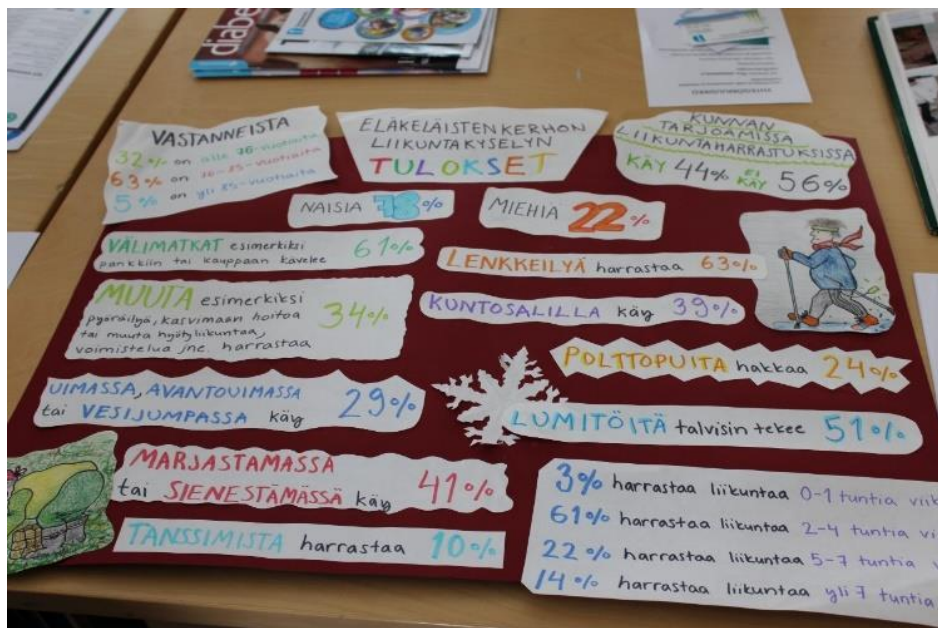 diabe
VASTANNEISTA
32% on alle 76-vuotiaita
63% on 76-85-vuotiaita
5% on yli 85-vuotiaita
ELÄKELÄISTEN KERHON
LIIKUNTAKYSELYN
TULOKSET
KUNNAN
TARJOAMISSA
LIIKUNTAHARRASTUKSISSA
KÄY 44% EI KÄY 56%
NAISIA 78%
MIEHIÄ 22%
VÄLIMATKAT esimerkiksi
pankkiin tai kauppaan kävelee 61%
LENKKEILYÄ harrastaa 63%
MUUTA esimerkiksi
pyöräilyä, kasvimaan hoitoa
tai muuta hyötyliikuntaa,
voimistelua jne. harrastaa
34%
KUNTOSALILLA käy 39%
POLTTOPUITA hakkaa 24%
UIMASSA, AVANTOUIMASSA
tai VESIJUMPASSA käy 29%
LUMITÖITÄ talvisin tekee 51%
MARJASTAMASSA
tai SIENESTÄMÄSSÄ käy 41%
TANSSIMISTA harrastaa 10%
3% harrastaa liikuntaa 0-1 tuntia viik
61% harrastaa liikuntaa 2-4 tuntia vi
22% harrastaa liikuntaa 5-7 tuntia
14% harrastaa liikuntaa yli 7 tuntia